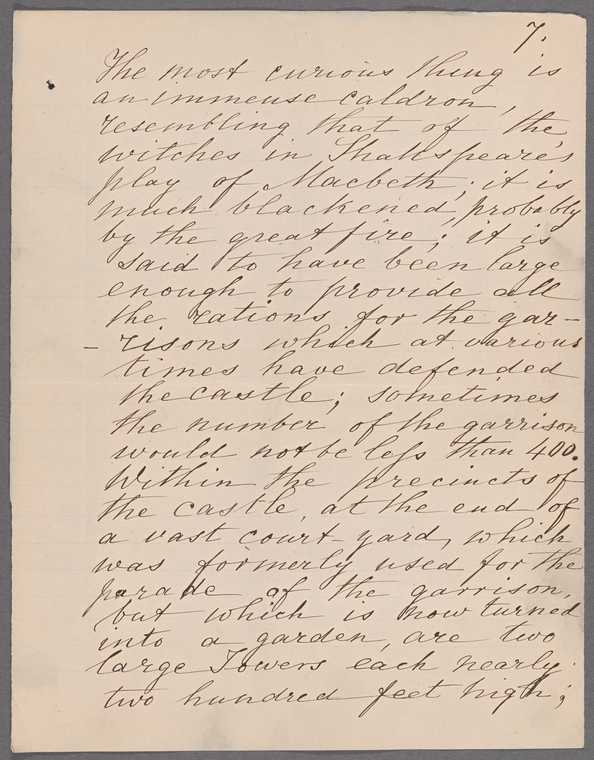 7.
The most curious thing is
an immense caldron,
resembling that of the
witches in Shakspeare's
play of Macbeth; it is
much blackened, probably
by the great fire; it is
said to have been large
enough to provide all
the rations for the gar-
-risons which at various
times have defended
the castle; sometimes
the number of the garrison
would not be less than 400.
Within the precincts of
the castle, at the end of
a vast court-yard, which
was formerly used for the
parade of the garrison,
but which is now turned
into a garden, are two
large Towers each nearly
two hundred feet high;